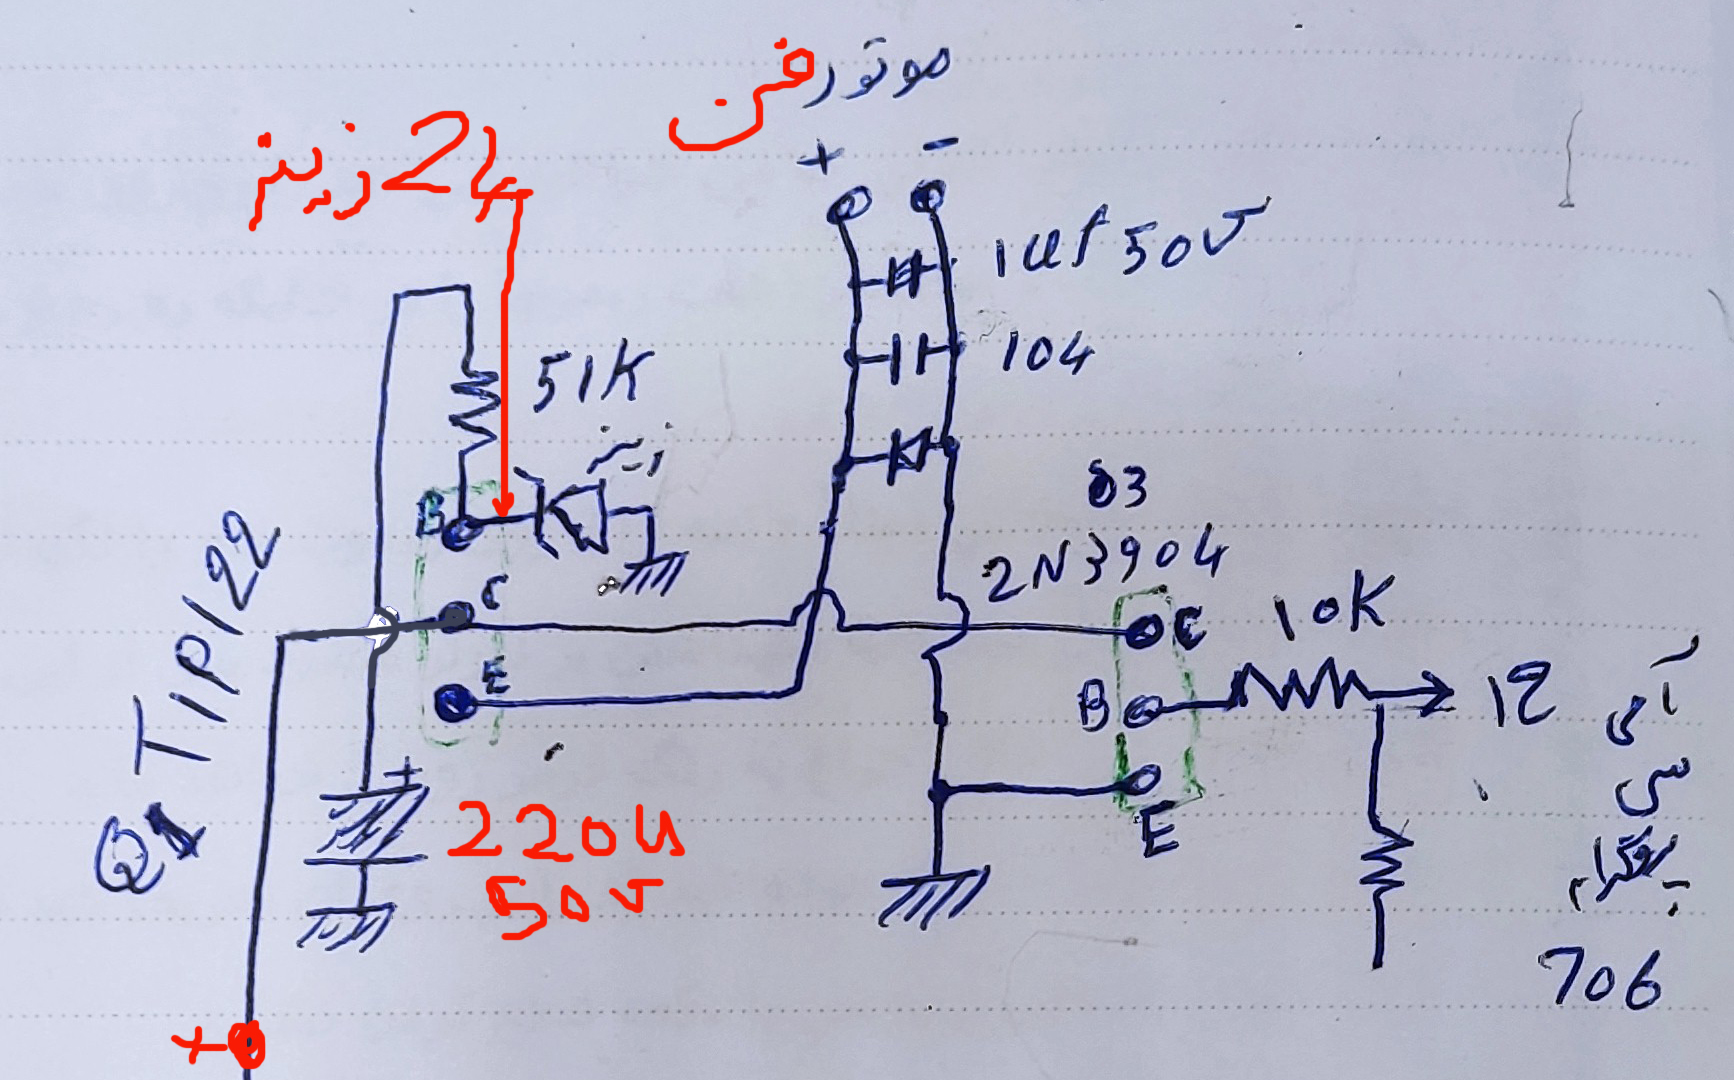 موتور فن
+ -
24 زینر
1uf 50v
104
51K
زنر
B
C
E
Q1 TIP122
03
2N3904
C
B
E
10K
12
آی
سی
پروگرام
706
+
220u
50v
+